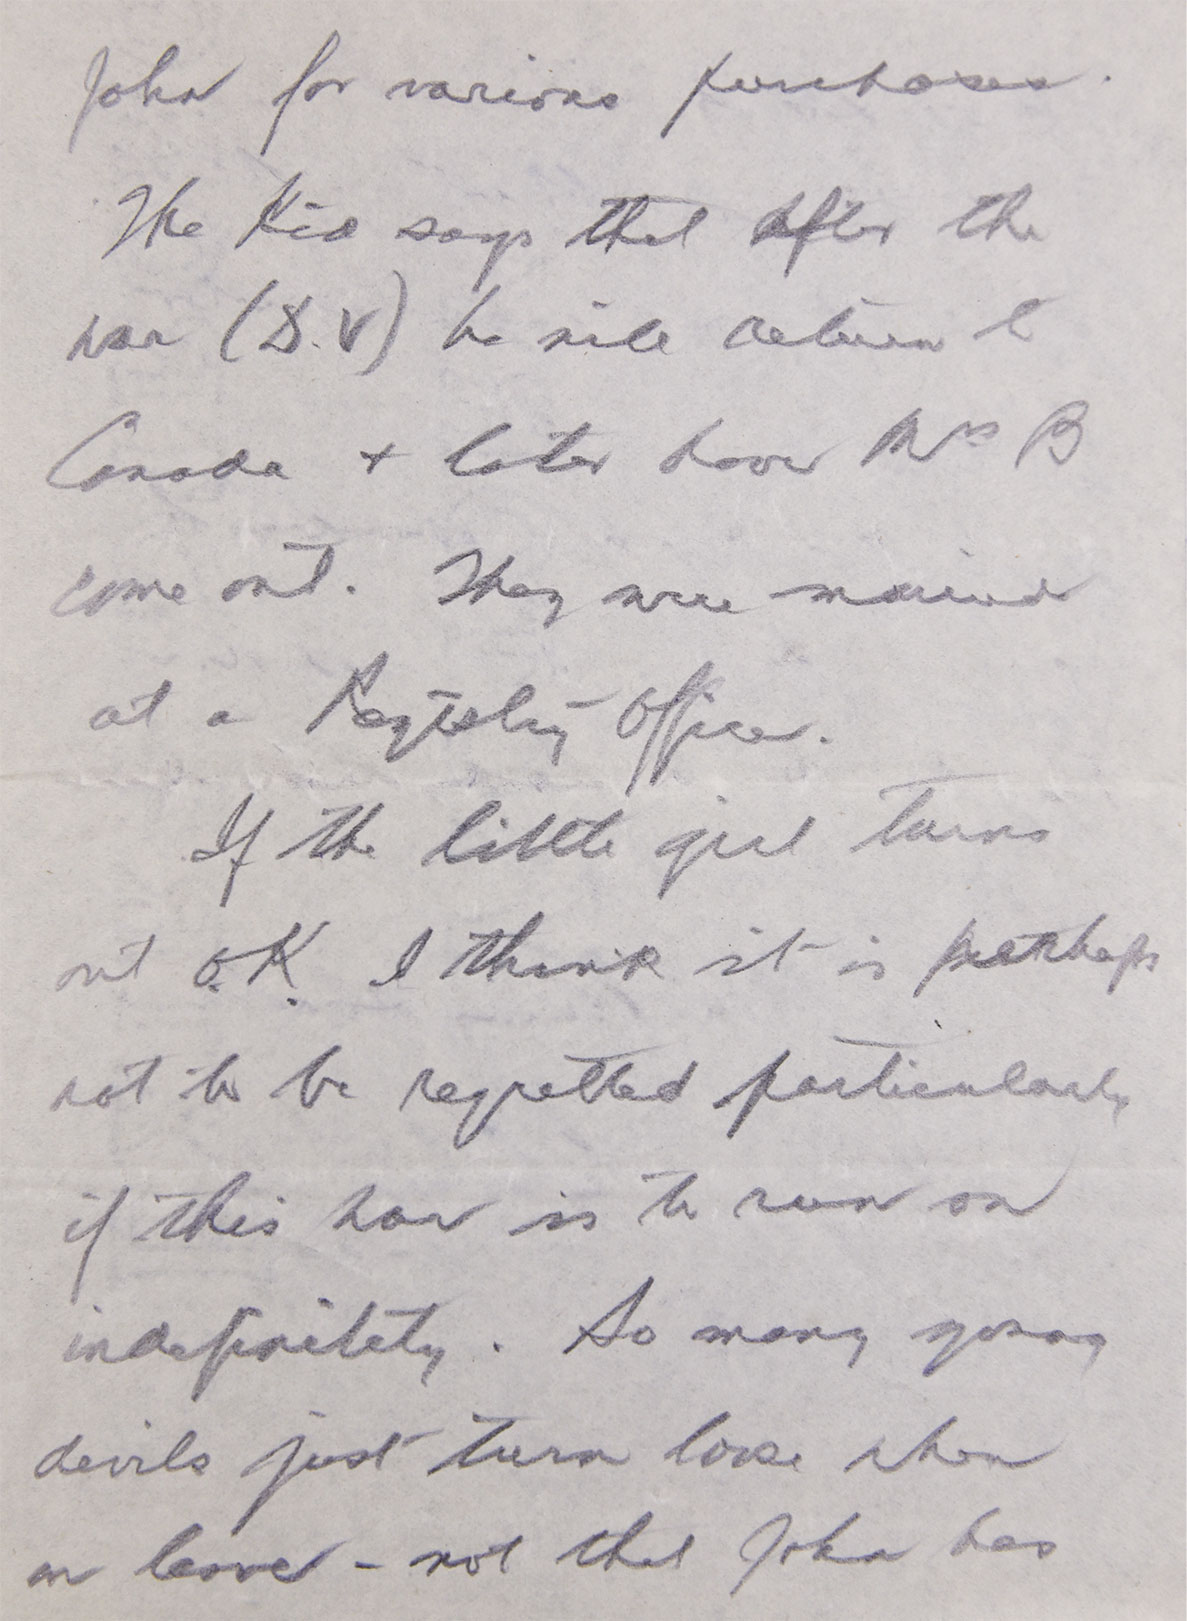 John for various purchases.
The Kid says that after the
war (D.V) he will return to
Canada + later have Mrs B
come out. They were married
at a Registry Office.
If the little girl turns
out O.K. I think it is perhaps
not to be regretted particularly
if this war is to run on
indefinitely. So many young
devils just turn loose when
on leave - not that John has